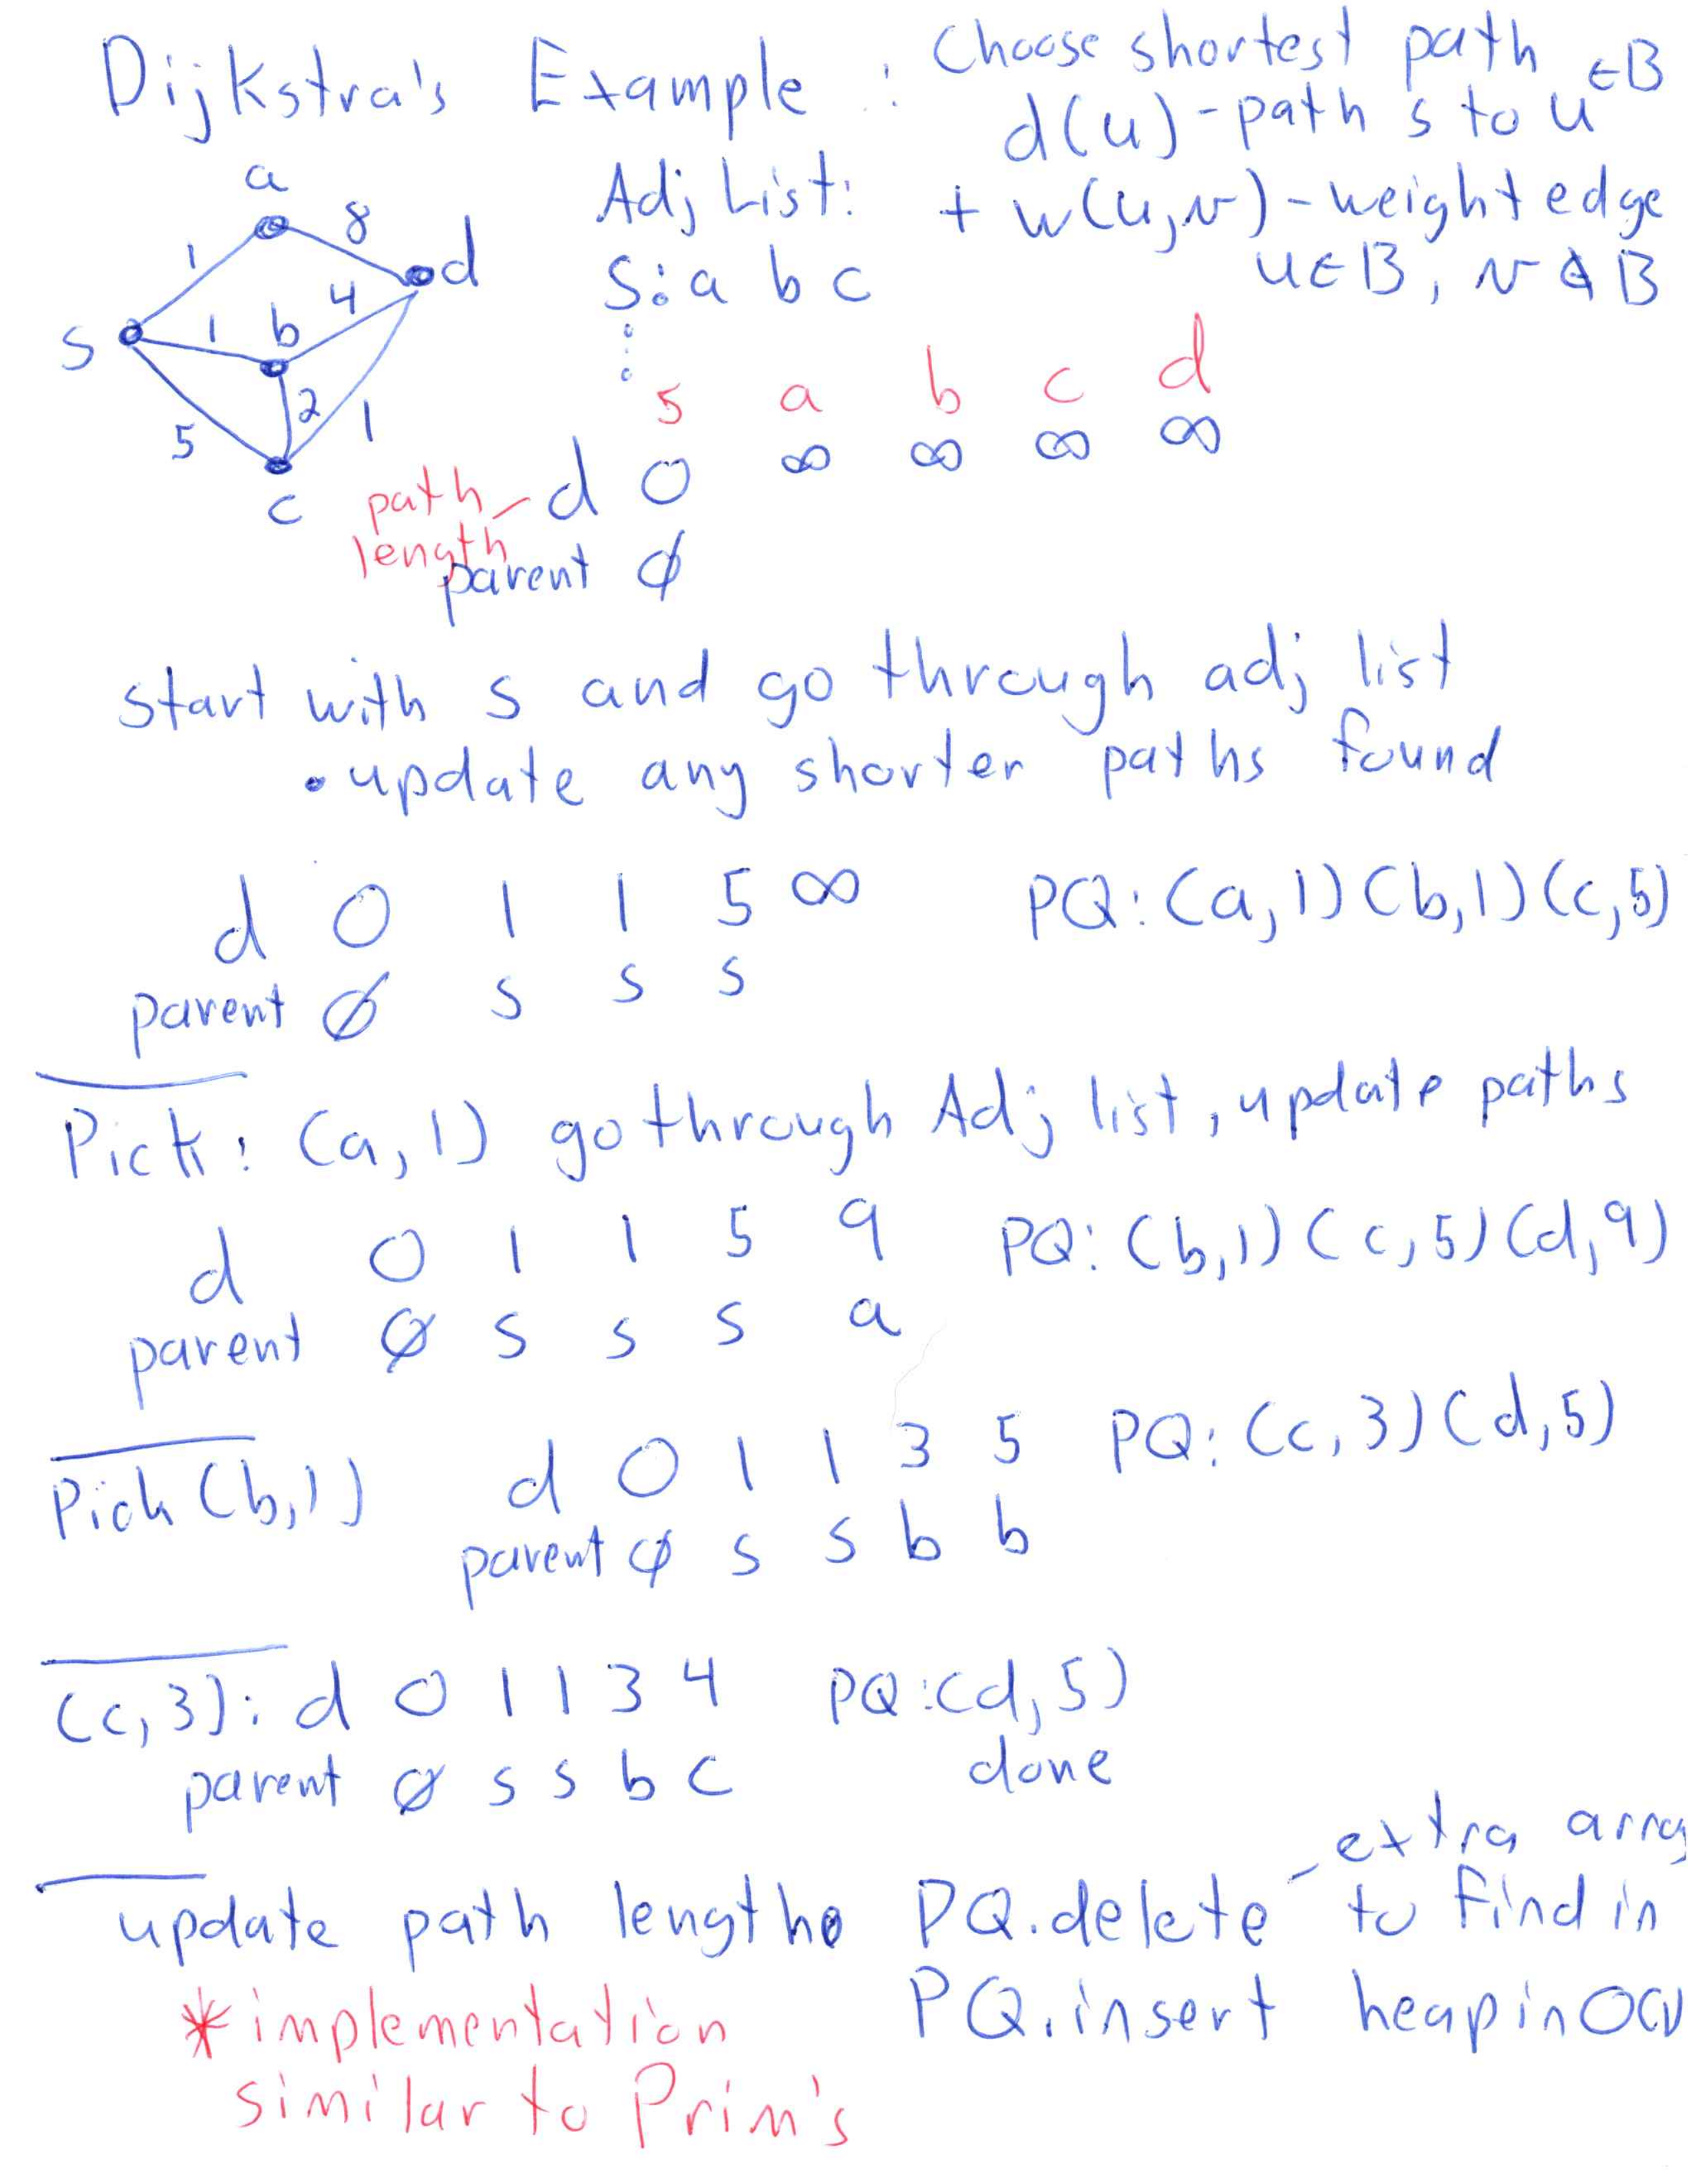 Dijkstra's Example : Choose shortest path
d(u) - path s to u ∈B
+ w(u,v) - weight edge
u∈B, v∉B
Adj List:
s: a b c
a
8
1
d
4
s
1
b
2
5
1
c
s a b c d
path length - d 0 ∞ ∞ ∞ ∞
parent ∅
start with s and go through adj list
• update any shorter paths found
d 0 1 1 5 ∞ PQ: (a,1)(b,1)(c,5)
parent ∅ s s s
Pick: (a,1) go through Adj list, update paths
d 0 1 1 5 9 PQ: (b,1)(c,5)(d,9)
parent ∅ s s s a
Pick (b,1) d 0 1 1 3 5 PQ: (c,3)(d,5)
parent ∅ s s b b
(c,3): d 0 1 1 3 4 PQ:(d,5)
parent ∅ s s b c done
update path length PQ.delete - extra array
to find in
PQ.insert heap in O(1)
* implementation
similar to Prim's